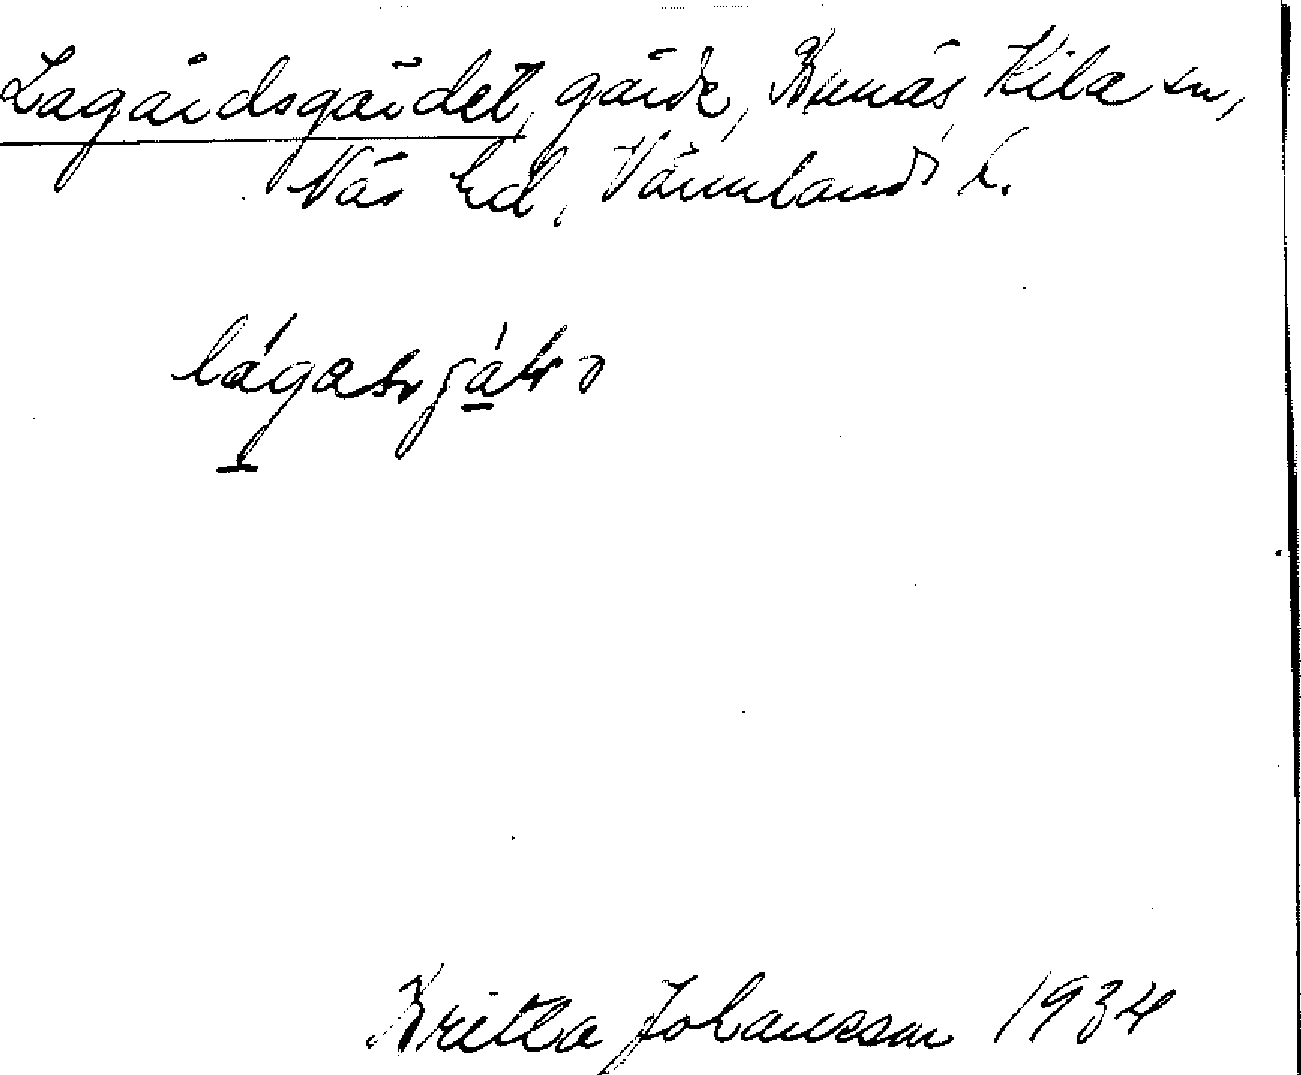 Lagårdsgärdet, gärde, Bunäs, Kila sn,
Näs hd, Värmlands l.
Britta Johansson 1934